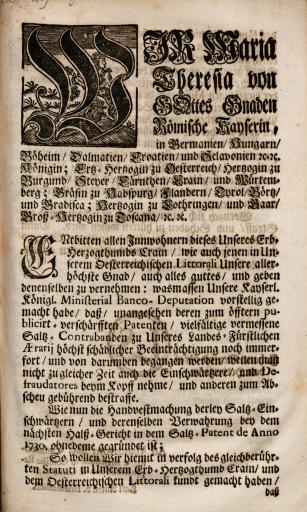 WIR Maria
Theresia von
GOttes Gnaden
Römische Kayserin,
in Germanien/ Hungarn/
Böheim/ Dalmatien/ Croatien/ und Sclavonien ꝛc. ꝛc.
Königin; Ertz-Hertzogin zu Oesterreich/ Hertzogin zu
Burgund/ Steyer/ Kärnthen/ Crain/ und Würtem-
berg; Gräfin zu Habspurg/ Flandern/ Tyrol/ Görtz/
und Gradisca; Hertzogin zu Lothringen/ und Baar/
Groß-Hertzogin zu Toscana/ ꝛc. ꝛc.
ENtbitten allen Innwohnern dieses Unseres Erb-
Hertzogthumbs Crain/ wie auch jenen in Un-
serem Oesterreichischen Littorali Unsere aller-
höchste Gnad/ auch alles guttes/ und geben
denenselben zu vernehmen: wasmassen Unsere Kayserl.
Königl. Ministerial Banco-Deputation vorstellig ge-
macht habe/ daß/ unangesehen deren zum öfftern pu-
blicirt-verschärfften Patenten/ vielfältige vermessene
Saltz-Contrabanden zu Unseres Landes-Fürstlichen
Ærarij höchst schädlicher Beeinträchtigung noch immer-
fort/ und von darumben begangen werden/ weilen man
nicht zu gleicher Zeit auch die Einschwärtzere/ und De-
fraudatores beym Kopff nehme/ und anderen zum Ab-
scheu gebührend bestraffe.
Wie nun die Handvestmachung derley Saltz-Ein-
schwärtzern/ und derenselben Verwahrung bey dem
nächsten Halß-Gericht in dem Saltz-Patent de Anno
1730. ohnedeme gegründet ist;
So wollen Wir hiemit in verfolg des gleichberühr-
ten Statuti in Unserem Erb-Hertzogthumb Crain/ und
dem Oesterreichischen Littorali kundt gemacht haben/
daß